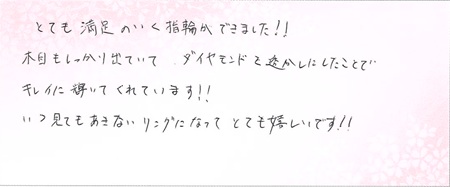 とても満足のいく指輪ができました!!
木目もしっかり出ていて、ダイヤモンドを透かしにしたことで
キレイに輝いてくれています!!
いつ見てもあきないリングになってとても嬉しいです!!